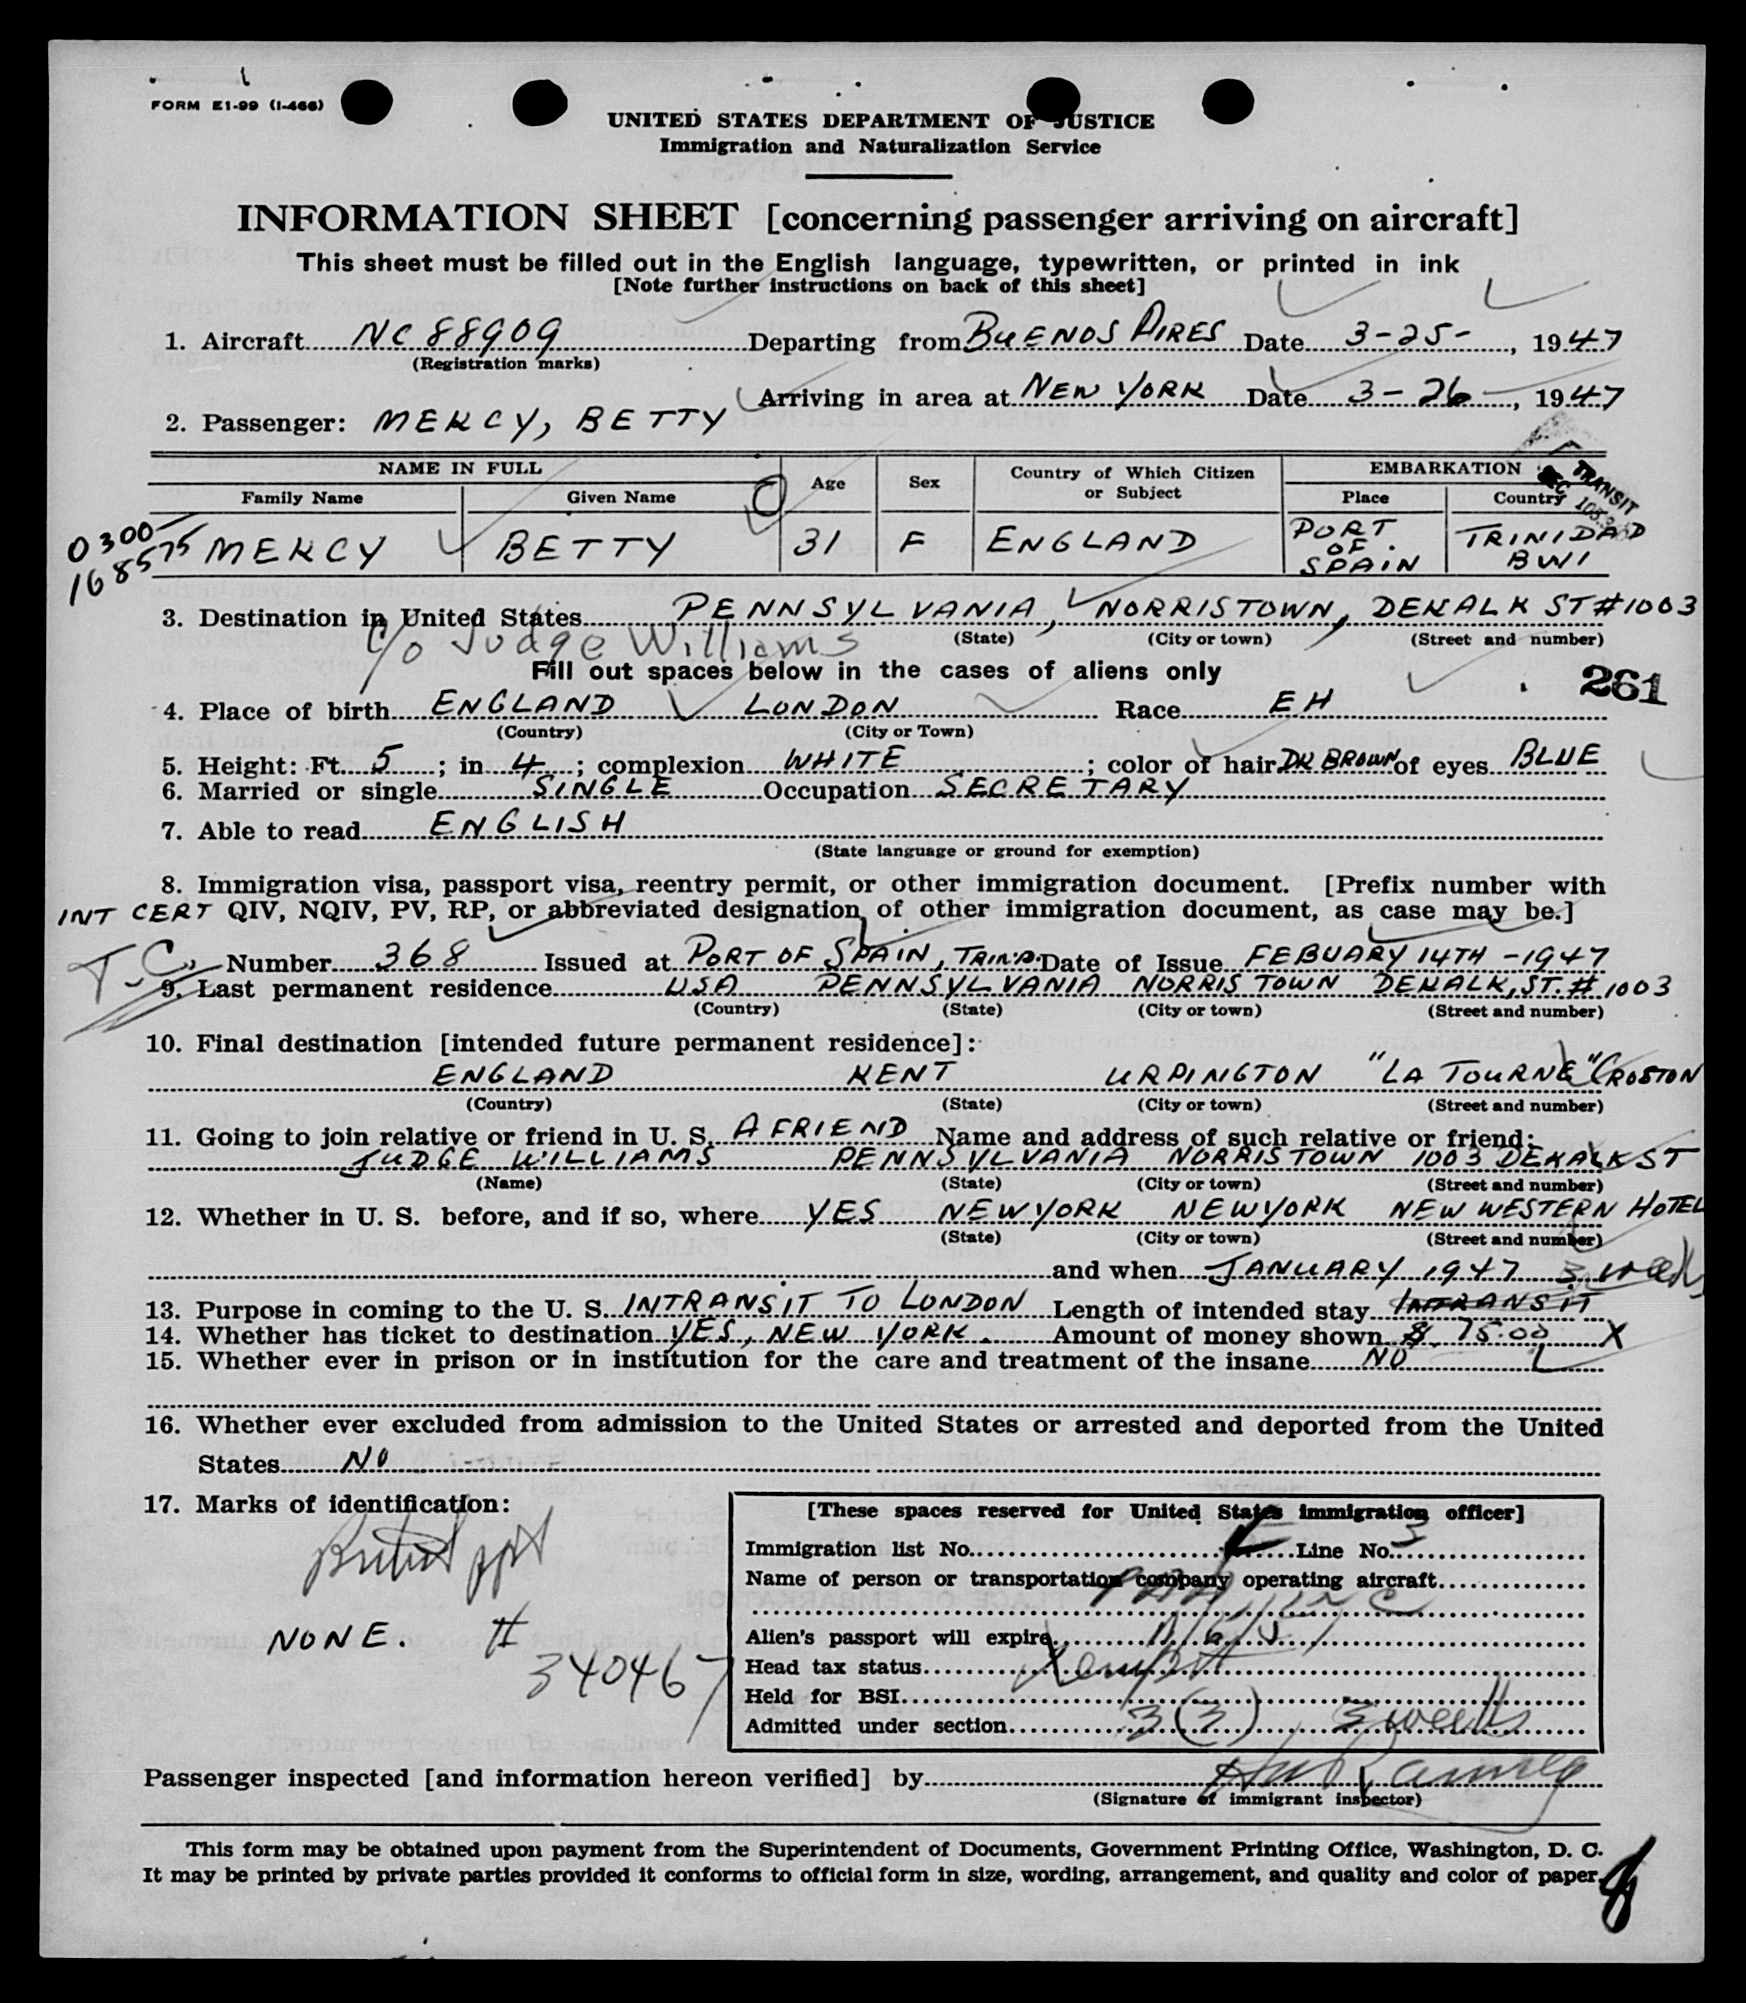 FORM E1-99 (1-466)
UNITED STATES DEPARTMENT OF JUSTICE
Immigration and Naturalization Service
INFORMATION SHEET [concerning passenger arriving on aircraft]
This sheet must be filled out in the English language, typewritten, or printed in ink
[Note further instructions on back of this sheet]
1. Aircraft NC 88909 Departing from BUENOS AIRES Date 3-25-, 1947
(Registration marks)
Arriving in area at NEW YORK Date 3-26-, 1947
2. Passenger: MERCY, BETTY
NAME IN FULL Age Sex Country of Which Citizen or Subject EMBARKATION
Family Name Given Name Place Country
TRANSIT
0300-
168575
MERCY BETTY 31 F ENGLAND PORT OF SPAIN TRINIDAD BWI
3. Destination in United States PENNSYLVANIA, NORRISTOWN, DEKALK ST #1003
(State) (City or town) (Street and number)
c/o Judge Williams
Fill out spaces below in the cases of aliens only
261
4. Place of birth ENGLAND LONDON Race EH
(Country) (City or Town)
5. Height: Ft. 5; in 4; complexion WHITE; color of hair DK BROWN of eyes BLUE
6. Married or single SINGLE Occupation SECRETARY
7. Able to read ENGLISH
(State language or ground for exemption)
8. Immigration visa, passport visa, reentry permit, or other immigration document. [Prefix number with
INT CERT QIV, NQIV, PV, RP, or abbreviated designation of other immigration document, as case may be.]
T.C. Number 368 Issued at PORT OF SPAIN, TRIN'D. Date of Issue FEBUARY 14TH -1947
9. Last permanent residence USA PENNSYLVANIA NORRISTOWN DEKALK, ST. # 1003
(Country) (State) (City or town) (Street and number)
10. Final destination [intended future permanent residece]:
ENGLAND KENT URPINGTON "LA TOURNE" CROSTON
(Country) (State) (City or town) (Street and number)
11. Going to join relative or friend in U. S. A FRIEND Name and address of such relative or friend:
JUDGE WILLIAMS PENNSYLVANIA NORRISTOWN 1003 DEKALK ST
(Name) (State) (City or town) (Street and number)
12. Whether in U. S. before, and if so, where YES NEW YORK NEW YORK NEW WESTERN HOTEL
(State) (City or town) (Street and number)
and when JANUARY 1947 3 weeks
13. Purpose in coming to the U. S. INTRANSIT TO LONDON Length of intended stay INTRANSIT
14. Whether has ticket to destination YES, NEW YORK. Amount of money shown $ 75.00 X
15. Whether ever in prison or in institution for the care and treatment of the insane NO
16. Whether ever excluded from admission to the United States or arrested and deported from the United
States NO
17. Marks of identification:
British ppt
NONE. #
340467
[These spaces reserved for United States immigration officer]
Immigration list No. Line No. 3
Name of person or transportation company operating aircraft
Alien's passport will expire
Head tax status Exempt
Held for BSI
Admitted under section 3(3) 3 weeks
Passenger inspected [and information hereon verified] by
(Signature of immigrant inspector)
This form may be obtained upon payment from the Superintendent of Documents, Government Printing Office, Washington, D. C.
It may be printed by private parties provided it conforms to official form in size, wording, arrangement, and quality and color of paper.